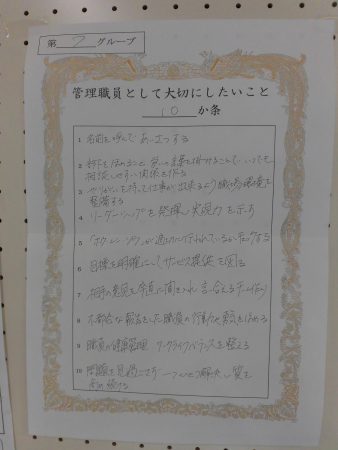 第 7 グループ
管理職員として大切にしたいこと
10 か条
1 名前を呼んで あいさつする
2 部下を 声を掛けることで いつでも
相談しやすい関係を作る
3 やりがいを持って仕事が出来るよう職場環境を
整備する
4 リーダーシップを発揮し 実現力を示す
5 「ホウ・レン・ソウ」が 行われているかチェックする
6 目標を明確にしてサービス提供を図る
7 相手の意見を 聞き入れ 言い合えるチーム作り
8 不都合な報告をした職員の行動や勇気をほめる
9 職員の健康管理 ワークライフバランスを整える
10 問題を見過ごさず 一つひとつ解決し 質を
求め続ける